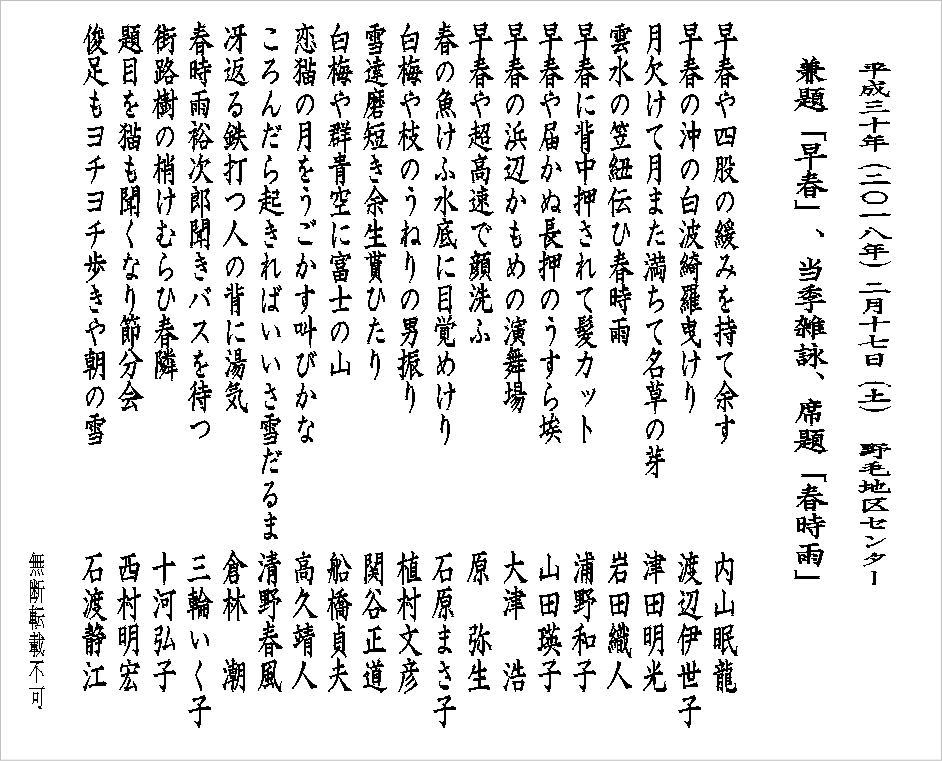 平成三十年（二〇一八年）二月十七日（土）　野毛地区センター
兼題「早春」、当季雑詠、席題「春時雨」
早春や四股の緩みを持て余す　内山眠龍
早春の沖の白波綺羅曳けり　渡辺伊世子
月欠けて月また満ちて名草の芽　津田明光
雲水の笠紐伝ひ春時雨　岩田織人
早春に背中押されて髪カット　浦野和子
早春や届かぬ長押のうすら埃　山田瑛子
早春の浜辺かもめの演舞場　大津　浩
早春や超高速で顔洗ふ　原　弥生
春の魚けふ水底に目覚めけり　石原まさ子
白梅や枝のうねりの男振り　植村文彦
雪達磨短き余生貰ひたり　関谷正道
白梅や群青空に富士の山　船橋貞夫
恋猫の月をうごかす叫びかな　高久靖人
ころんだら起きればいいさ雪だるま　清野春風
冴返る鉄打つ人の背に湯気　倉林　潮
春時雨裕次郎聞きバスを待つ　三輪いく子
街路樹の梢けむらひ春隣　十河弘子
題目を猫も聞くなり節分会　西村明宏
俊足もヨチヨチ歩きや朝の雪　石渡静江
無断転載不可